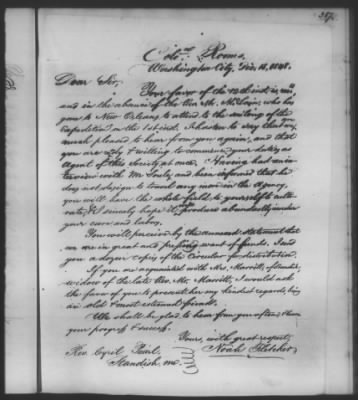 257.
Col. Rooms,
Washington City, 18, 1848.
Dear Sir,
Your favor of the 12th inst. is rec'd,
and in the absence of the Rev. Mr. McLain, who has gone
to New Orleans to attend to the sailing of the
Expedition on the 1st inst. I hasten to say that I am
much pleased to hear from you again, and that
you are ready & willing to commence your duties as
Agent of this Society at once. Having had an in-
terview with Mr. and been informed that he
does not design to travel any more in the Agency,
you will have the whole field to yourself to culti-
vate, & I sincerely hope it produce abundantly under
your care and labors.
You will perceive by the annexed statement that
we are in great and pressing want of funds. I send
you a dozen copies of the Circular for distribution.
If you are acquainted with Mrs. Merrill,
widow of the late Rev. Mr. Merrill, I would ask
the favor of you to present her my kindest regards, being
an old & most esteemed friend.
We shall be glad to hear from you often, & learn
your progress & success.
Yours, with great respect,
Noah Fletcher
Rev. Cyril Pearl,
Standish, Me.